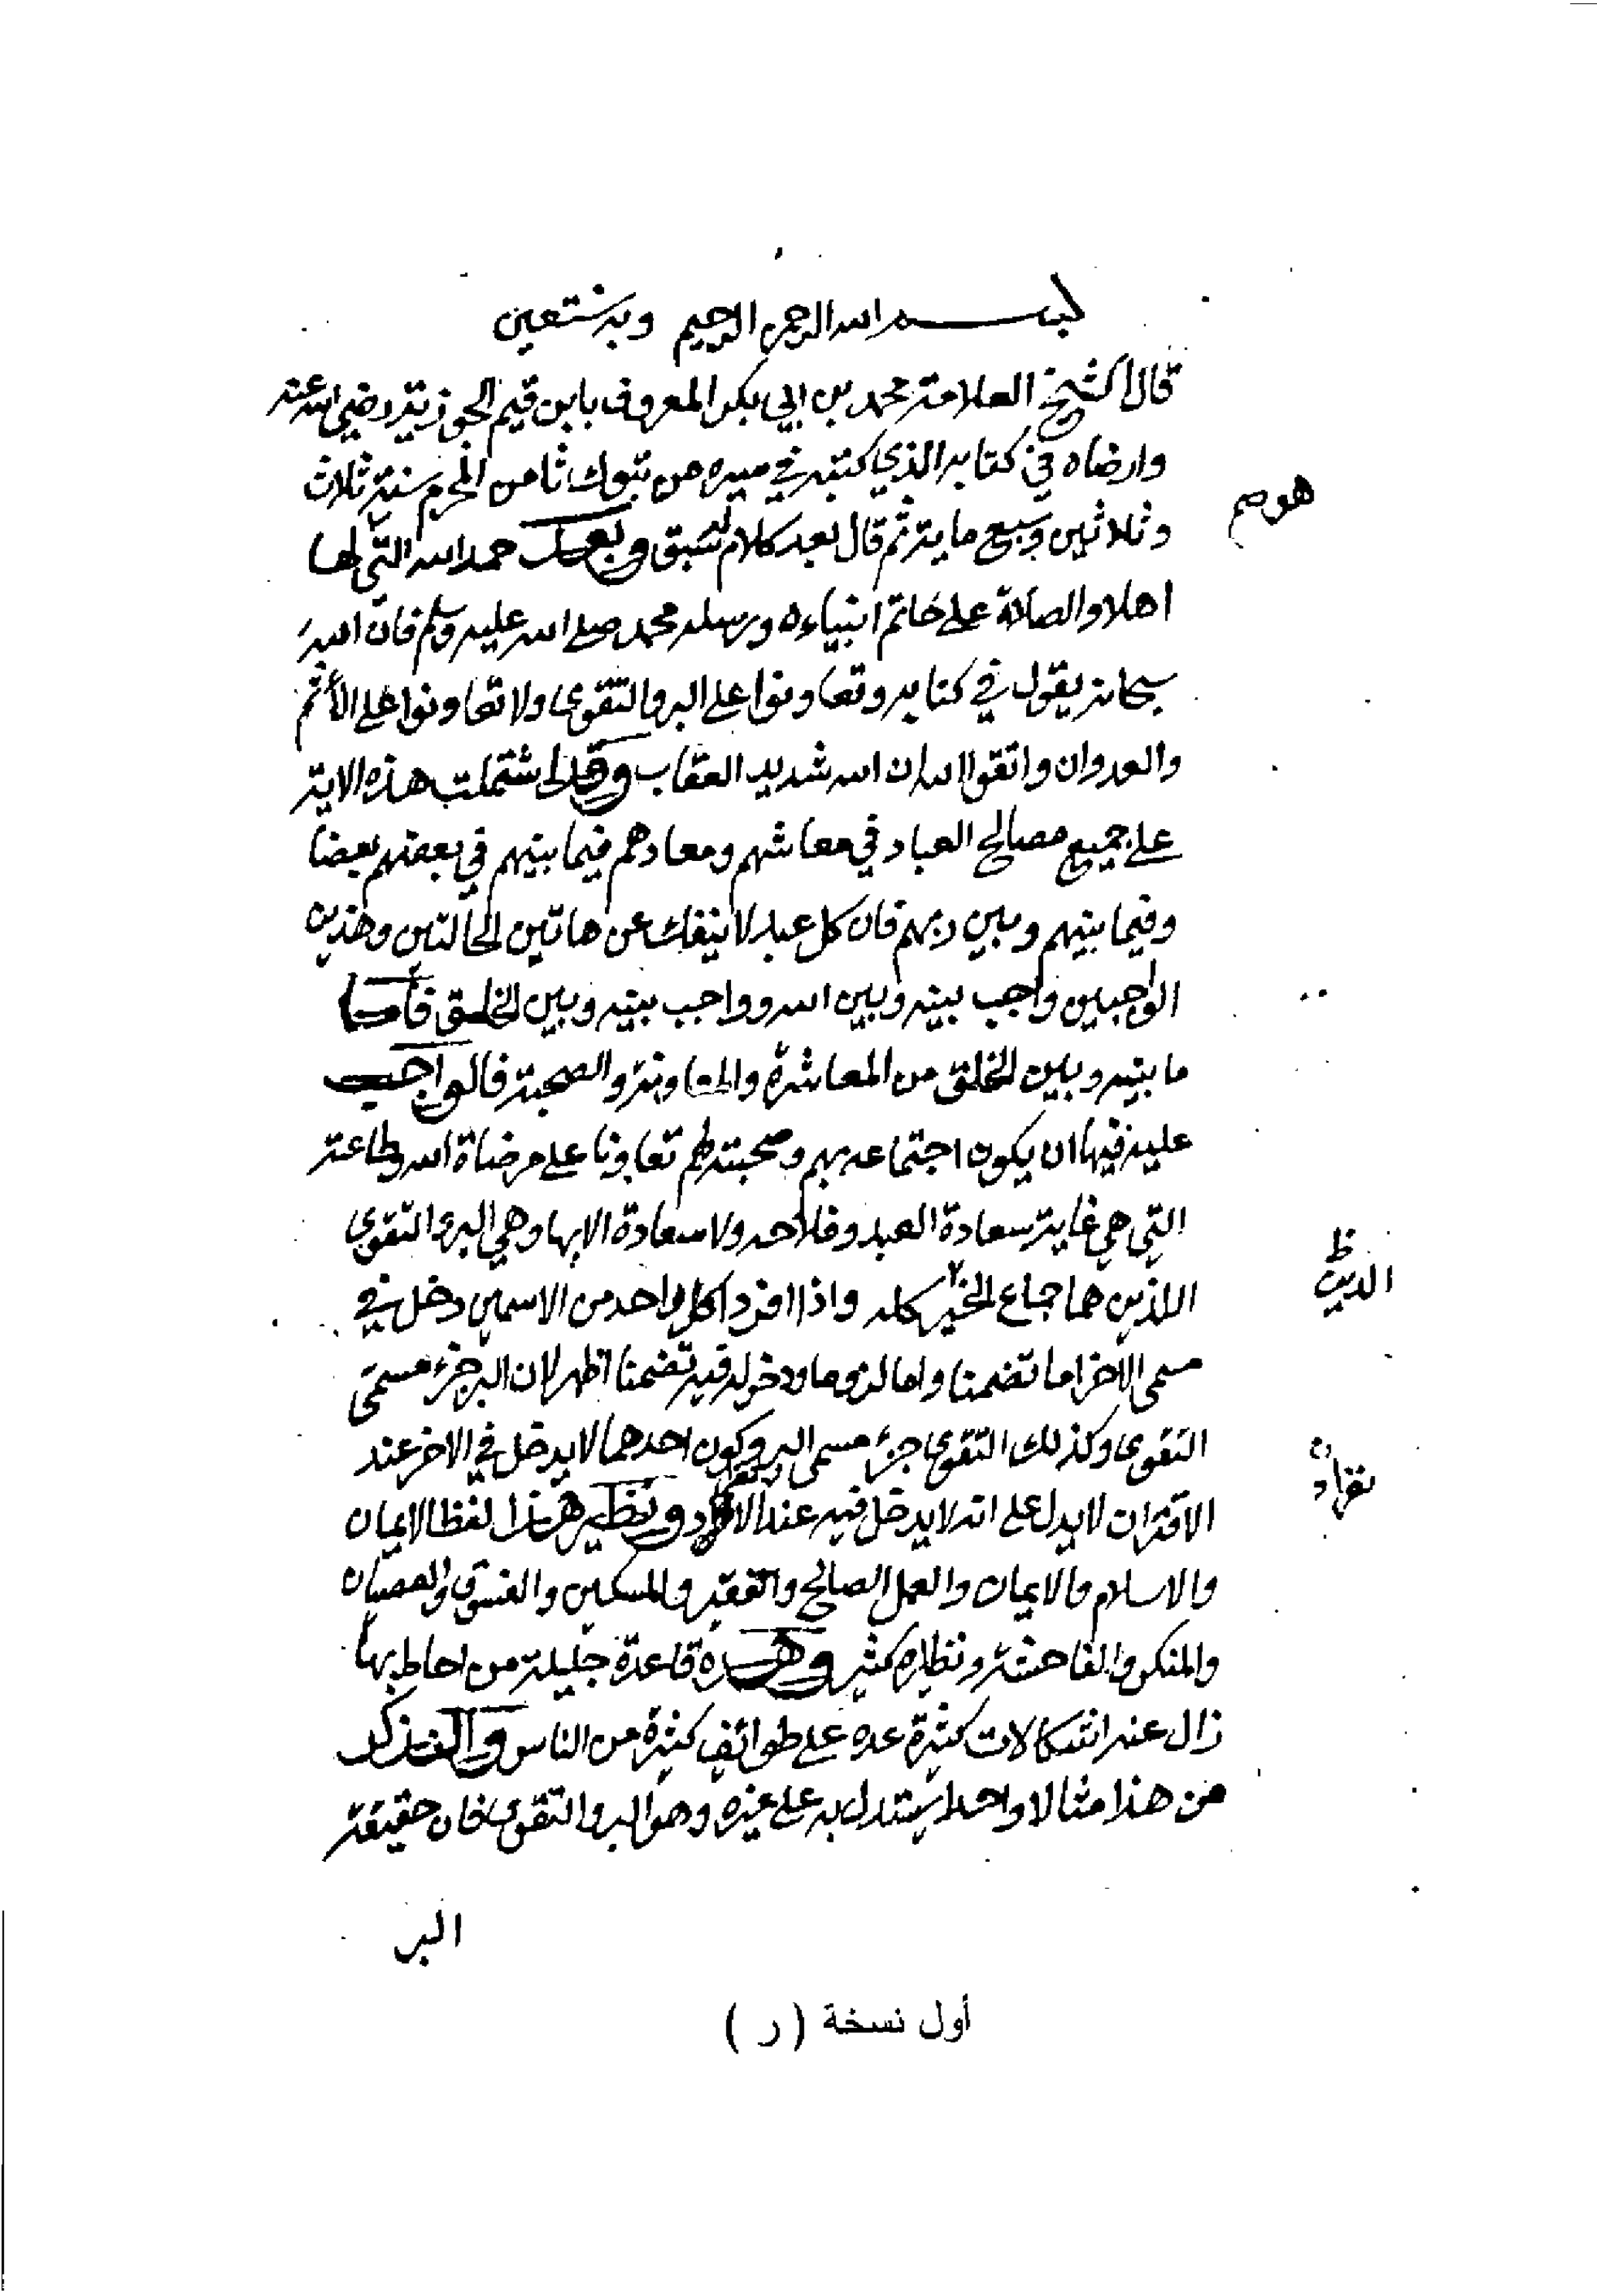 بسم الله الرحمن الرحيم وبه نستعين
قال الشيخ العلامة محمد بن ابي بكر المعروف بابن قيم الجوزية رضي الله عنه
وارضاه في كتابه الذي كتبه في سيره من تبوك ثامن المحرم سنة ثلاث
وثلاثين وسبع ماية ثم قال بعد كلام له سبق وبعد حمد الله التي لها
اهلا والصلاة على خاتم انبياءه ورسله محمد صلى الله عليه وسلم فان الله
سبحانه يقول في كتابه وتعاونوا على البر والتقوى ولا تعاونوا على الأثم
والعدوان واتقوا الله ان الله شديد العقاب وقد اشتملت هذه الاية
على جميع مصالح العباد في معاشهم ومعادهم فيما بينهم في بعضهم بعضا
وفيما بينهم وبين ربهم فان كل عبد لا ينفك عن هاتين الحالتين وهذين
الواجبين واجب بينه وبين الله وواجب بينه وبين الخلق فأما
ما بينه وبين الخلق من المعاشرة والمعاونة والصحبة فالواجب
عليه فيها ان يكون اجتماعه بهم وصحبته لهم تعاونا على مرضاة الله وطاعته
التي هي غاية سعادة العبد وفلاحه ولا سعادة الا بها وهي البر والتقوى
اللذين هما جماع الخير كله واذا افرد كل واحد من الاسمين دخل في
مسمى الآخر اما تضمنا واما لزوما ودخوله فيه تضمنا اظهر لان البر جزء مسمى
التقوى وكذلك التقوى جزء مسمى البر وكون احدهما لا يدخل في الاخر عند
الاقتران لا يدل على انه لا يدخل فيه عند الافراد ونظير هذا لفظ الايمان
والاسلام والايمان والعمل الصالح والفقير والمسكين والفسوق والعصيان
والمنكر والفاحشة ونظايره كثير وهذه قاعدة جليلة من احاط بها
زال عنه اشكالات كثيرة عده على طوائف كثيرة من الناس ولنذكر
من هذا مثالا واحدا يستدل به على غيره وهو البر والتقوى فان حقيقة
البر
الدين
أول نسخة ( ر )